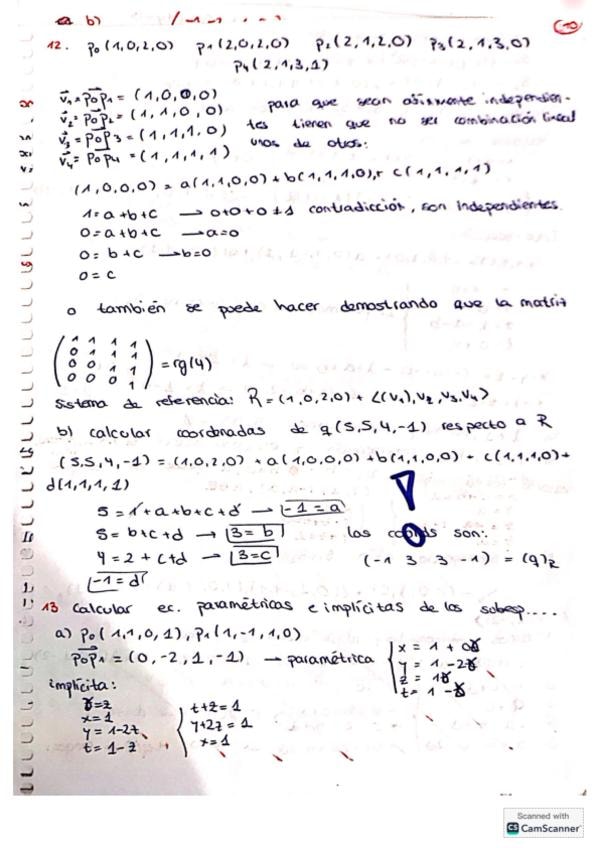 b)
12. p₀(1,0,2,0) p₁(2,0,2,0) p₂(2,1,2,0) p₃(2,1,3,0)
p₄(2,1,3,1)
v⃗₁ = p₀p₁ = (1,0,0,0) para que sean afínmente independien-
v⃗₂ = p₀p₂ = (1,1,0,0) tes tienen que no ser combinación lineal
v⃗₃ = p₀p₃ = (1,1,1,0) unos de otros:
v⃗₄ = p₀p₄ = (1,1,1,1)
(1,0,0,0) = a(1,1,0,0) + b(1,1,1,0) + c(1,1,1,1)
1 = a+b+c → 0+0+0 ≠ 1 contradicción, son independientes.
0 = a+b+c → a=0
0 = b+c → b=0
0 = c
o también se puede hacer demostrando que la matriz
1 1 1 1
0 1 1 1
0 0 1 1 = rg(4)
0 0 0 1
Sistema de referencia: R = (1,0,2,0) + L<(v₁), v₂, v₃, v₄>
b) calcular coordnadas de q(5,5,4,-1) respecto a R
(5,5,4,-1) = (1,0,2,0) + a(1,0,0,0) + b(1,1,0,0) + c(1,1,1,0) +
d(1,1,1,1)
5 = 1+a+b+c+d → -1 = a
5 = b+c+d → 3 = b las son:
4 = 2 + c+d → 3 = c (-1 3 3 -1) = (q)R
-1 = d
13 Calcular ec. paramétricas e implícitas de los subesp....
a) p₀(1,1,0,1), p₁(1,-1,1,0)
p₀p₁ = (0,-2,1,-1) → paramétrica x = 1 + 0γ
y = 1 - 2γ
z = 1γ
t = 1 - γ
implícita:
γ=z t+z=1
x=1 y+2z=1
y=1-2z x=1
t=1-z
Scanned with
CS CamScanner